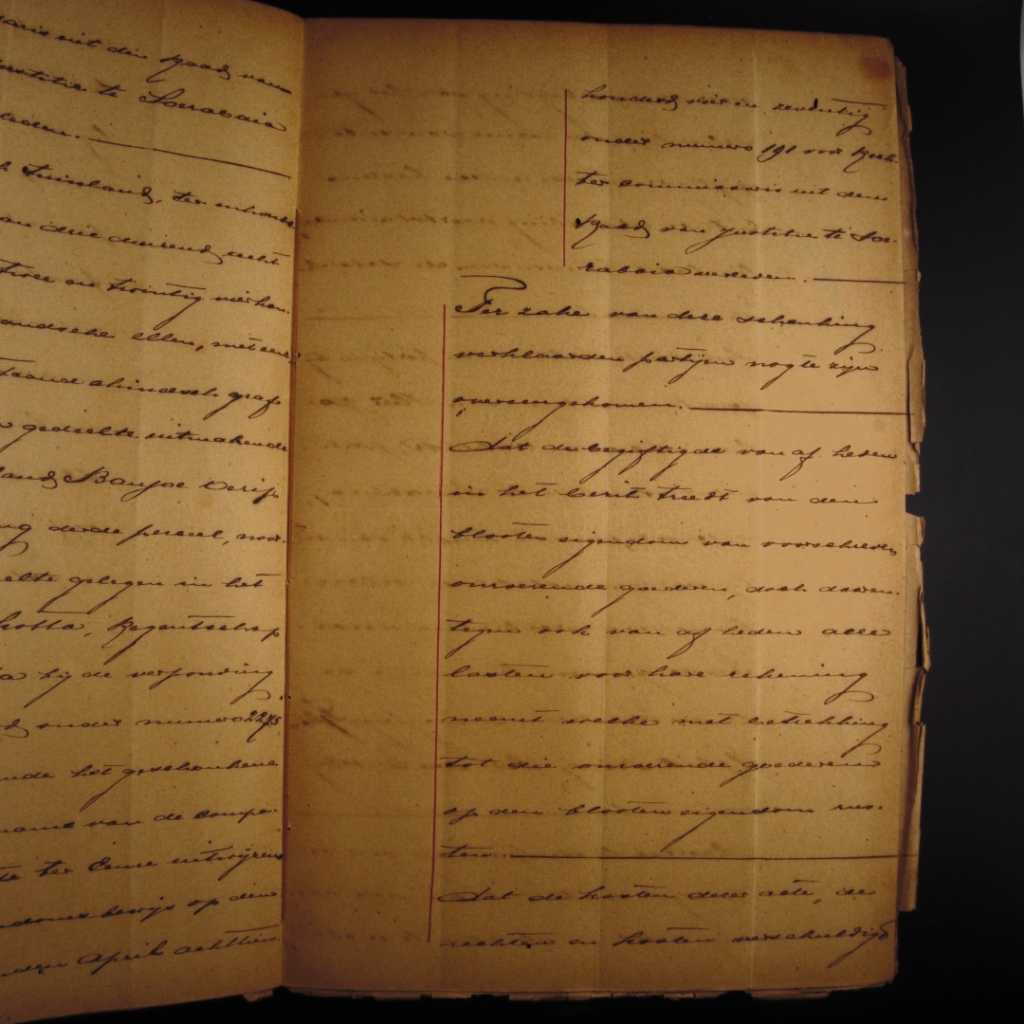 uit den Raad van
Justitie te Soerabaia
leden.
Tuinland, ter
drie duizend acht
twee en twintig vierkan
ellen, met een
staande chineesch graf
gedeelte uitmakende
land Banjoe Oerip
derde perceel,
gelegen in het
Kotta, Regentschap
bij de verponding
onder numero 2275
het geschonkene
name van de Compa
te ter Eene uitwijzens
bewijs op den
April achttien
honderd vier en zeventig
onder numero 191 voor Rech
ter commissaris uit den
Raad van Justitie te Soe
rabaia verleden.
Ter zake van deze schenking
verklaarden partijen nog te zijn
overeengekomen.
Dat de begiftigde van af heden
in het bezit treedt van den
blooten eigendom van voorschreven
onroerende goederen, doch daaren
tegen ook van af heden alle
lasten voor hare rekening
neemt welke met betrekking
tot die onroerende goederen
op den blooten eigendom rus
ten.
Dat de kosten dezer acte, de
rechten en kosten verschuldigd